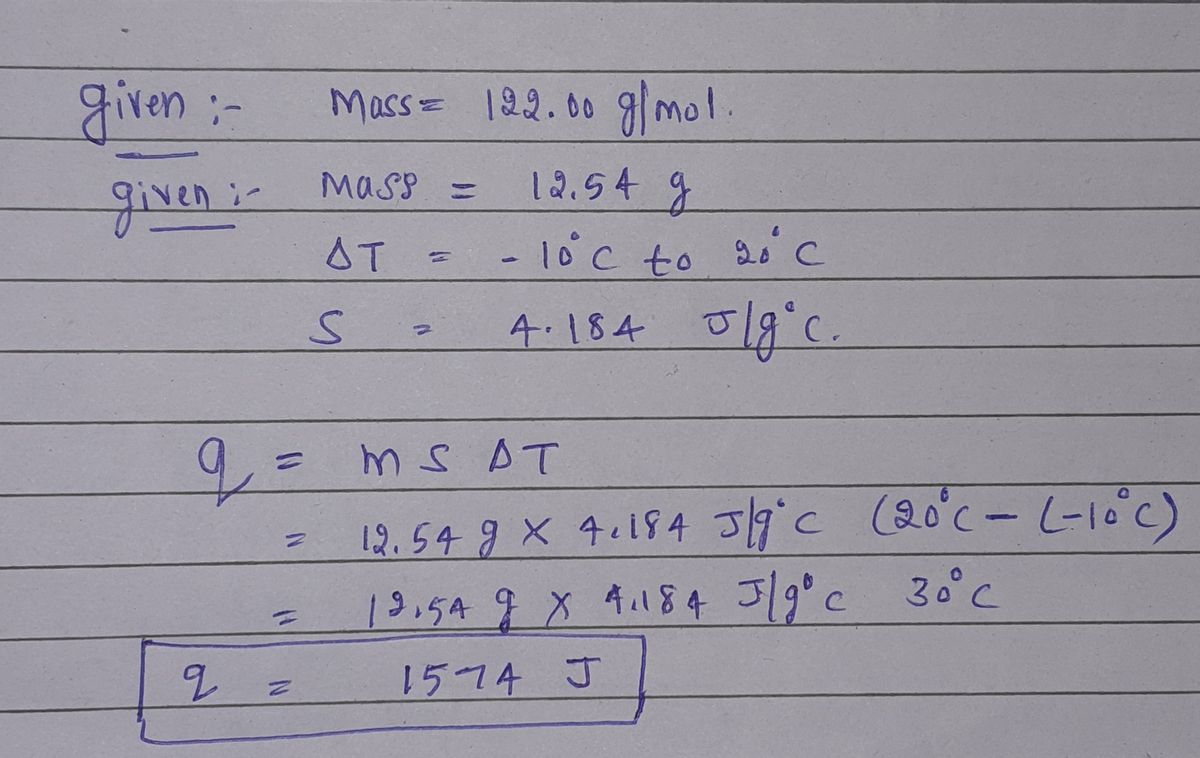 given :- Mass = 122.00 g/mol.
given :- Mass = 12.54 g
ΔT = -10°C to 20°C
S = 4.184 J/g°C.
q = m s ΔT
= 12.54 g × 4.184 J/g°C (20°C - (-10°C)
= 12.54 g × 4.184 J/g°C 30°C
q = 1574 J